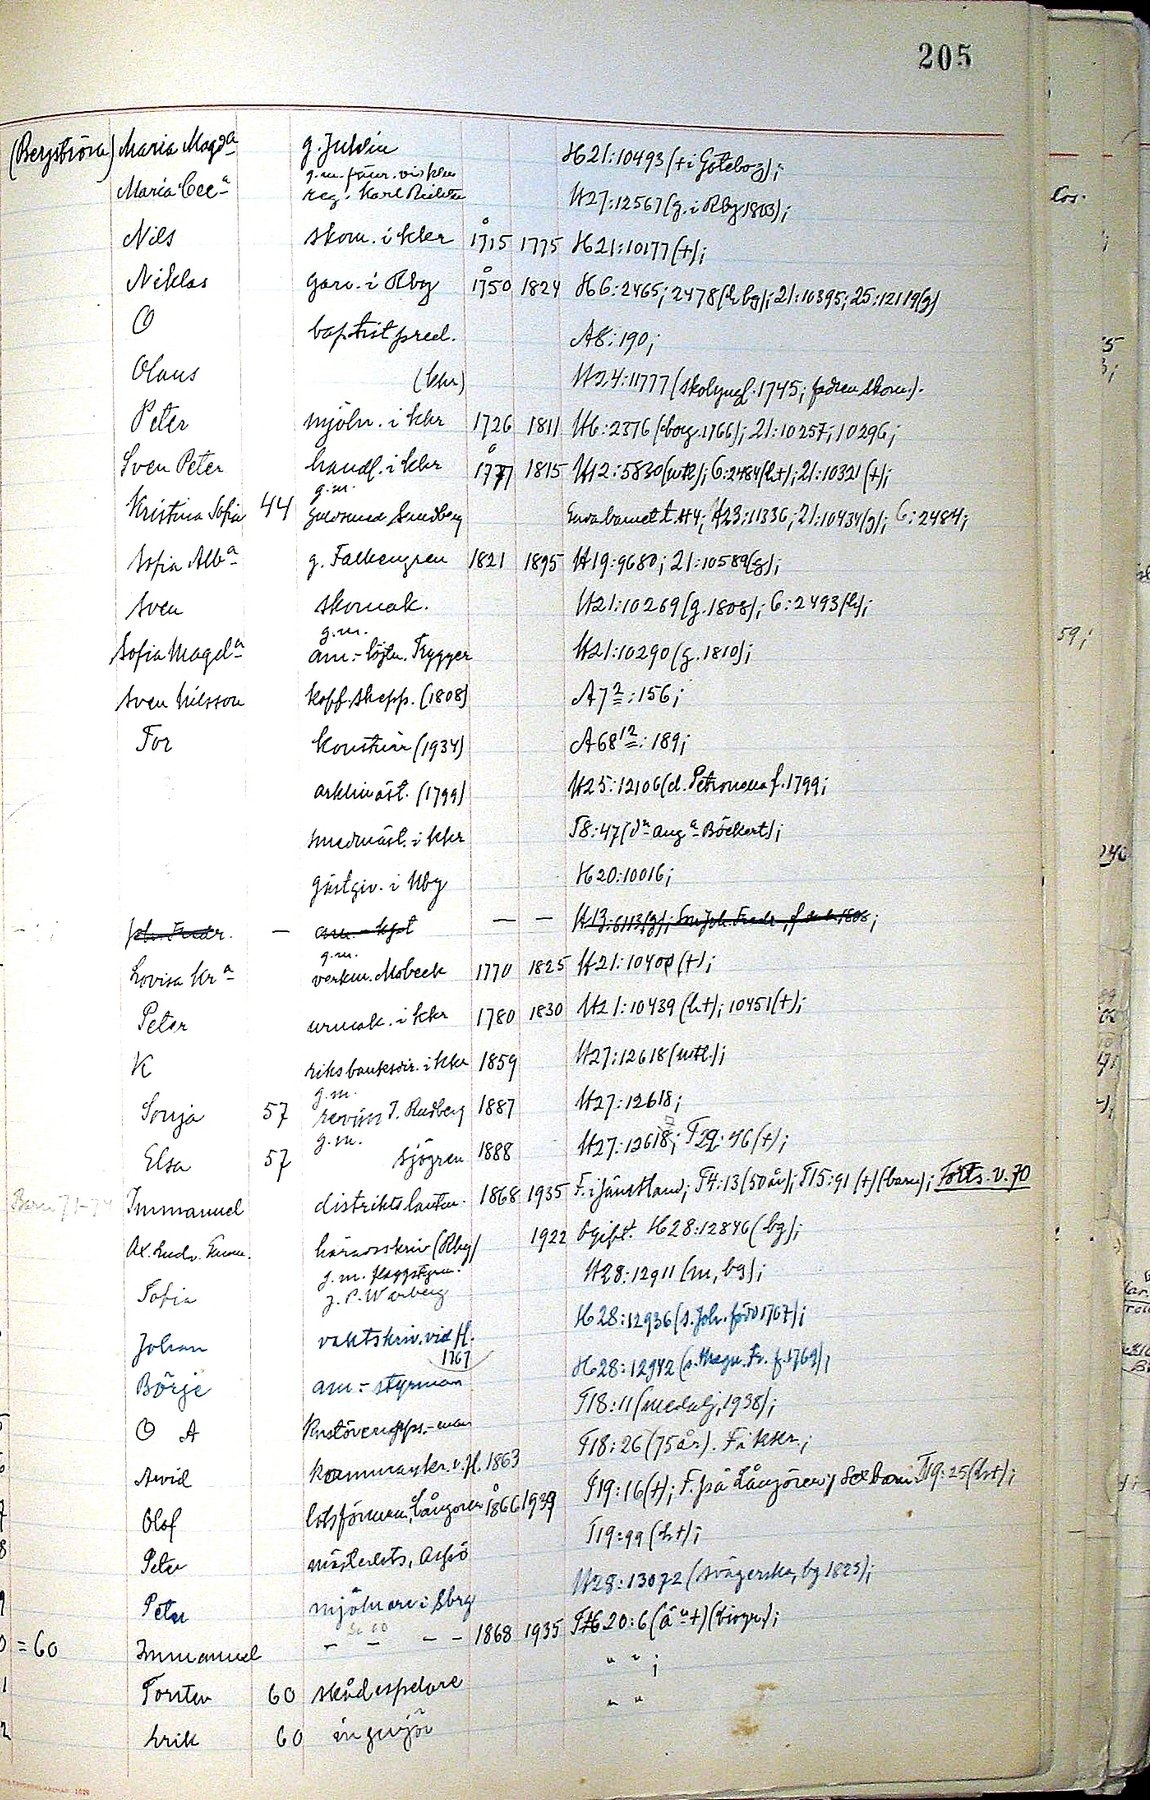 205
(Bergström) Maria Magda g. Juhlin H21:10493 (+ i Göteborg);
Maria Cec-a g.m. reg. Karl Richter H27:12567 (g. i Rby 1803);
Nils skom. i kkr 1715 1775 H21:10177 (+);
Niklas garv. i Rby 1750 1824 H6:2465; 2478 (h bg); 21:10395; 25:12119 (g)
O baptistpred. A8:190;
Olaus (kkr) H24:11777 (skolyngl. 1745; fadren skom.).
Peter mjöln. i kkr 1726 1811 H6:2376 (borg. 1766); 21:10257; 10296;
Sven Peter handl. i kkr 1777 1815 H12:5830 (utl); 6:2484 (h+); 21:10321 (+);
Kristina Sofia 44 g.m. guldsmed Sundberg H4; H23:11336; 21:10434 (g); 6:2484;
Sofia Alb-a g. Falkengren 1821 1895 H19:9680; 21:10589 (g);
Sven skomak. H21:10269 (g. 1808); 6:2493 (h);
Sofia Magd-a g.m. am:-löjtn. Trygger H21:10290 (g. 1810);
Sven Nilsson koff. skepp. (1808) A7 2:156;
Tor konstnär (1934) A68 12:189;
arklimäst. (1799) H25:12106 (d. Petronella f. 1799;
smedmäst. i kkr T8:47 (d-n Aug-a Böckert);
gästgiv. i Nby H20:10016;
Joh. Fredr. — am:-kapt — — H13:6113 (g); Son Joh. Fredr., f. 1806;
Lovisa Kr-a g.m. verkm. Mobeck 1770 1825 H21:10400 (+);
Peter urmak. i kkr 1780 1830 H21:10439 (h+); 10451 (+);
K riksbanksdir. i kkr 1859 H27:12618 (utl.);
Sonja 57 g.m. revisor T. Rudberg 1887 H27:12618;
Elsa 57 g.m. Sjögren 1888 H27:12618; T29:46 (+);
Barn 71-74 Immanuel distriktslantm. 1868 1935 F. i Jämtland; T4:13 (50 år); T15:91 (+) (barn); Forts. v. 70
Ax. Ludv. Emm. häradsskriv (Rby) 1922 Ogift. H28:12846 (bg);
Sofia g.m. J. P. Warberg H28:12911 (m, bg);
Johan vaktskriv. vid fl. 1767 H28:12936 (s. Joh. född 1767);
Börje am:-styrman H28:12942 (s. Magn. Fr. f. 1769);
O A Kustöverupps.-man T18:11 (medalj, 1938);
Arvid kammarskr. v. fl. 1863 T18:26 (75 år). F i kkr.;
Olof lotsförman, Långören 1866 1939 T19:16 (+); F. på Långören; Sex barn. T19:25 (h+);
Peter mästerlots, Aspö T19:99 (h+);
Peter mjölnare i Sbrg H28:13072 (svägerska, bg 1823);
=60 Immanuel – – – – 1868 1935 T20:6 (å-n +) (biogr.);
Torsten 60 skådespelare " " ;
Erik 60 ingenjör " "